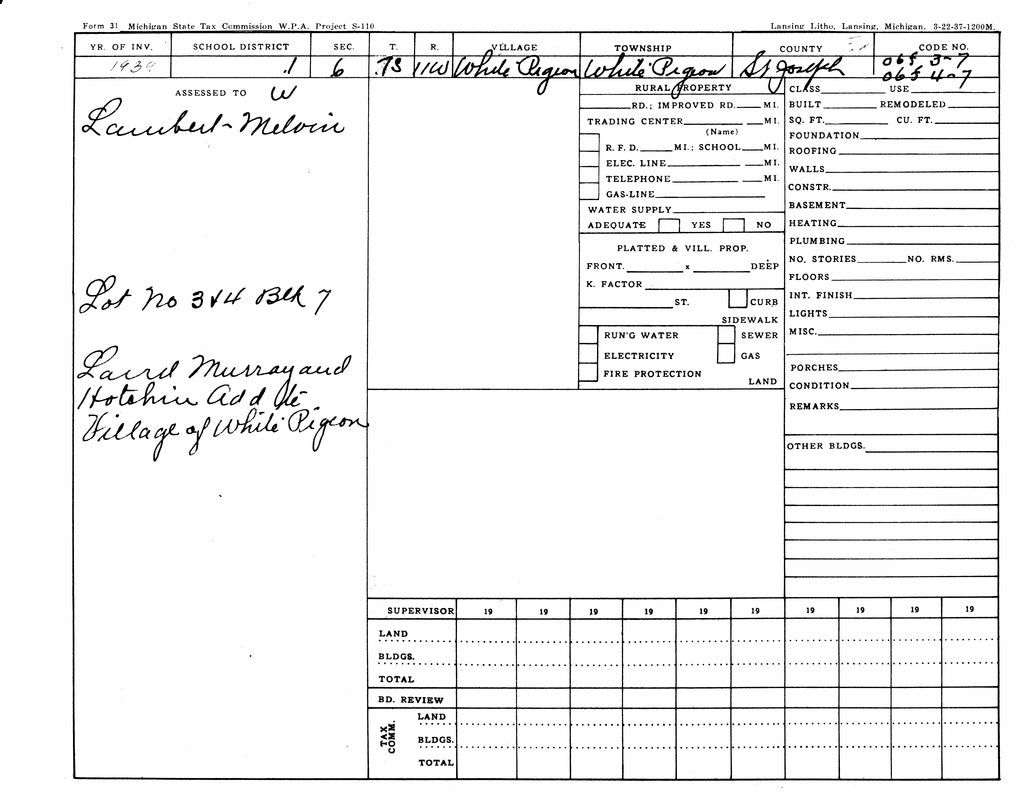 Form 31 Michigan State Tax Commission W.P.A. Project S-110 Lansing Litho. Lansing, Michigan. 3-22-37-1200M.
YR. OF INV. SCHOOL DISTRICT SEC. T. R. VILLAGE TOWNSHIP COUNTY CODE NO.
1939 .1 6 7S 11W White Pigeon White Pigeon St Joseph 065 3-7
065 4-7
ASSESSED TO W
Lambert - Melvin
Lot No 3 & 4 Blk 7
Laird Murray and
Hotchin Add to
Village of White Pigeon
RURAL PROPERTY
RD.; IMPROVED RD. MI.
TRADING CENTER MI.
(Name)
R. F. D. MI.; SCHOOL MI.
ELEC. LINE MI.
TELEPHONE MI.
GAS-LINE
WATER SUPPLY
ADEQUATE YES NO
PLATTED & VILL. PROP.
FRONT. x DEEP
K. FACTOR
ST. CURB
SIDEWALK
RUN'G WATER SEWER
ELECTRICITY GAS
FIRE PROTECTION
LAND
CLASS USE
BUILT REMODELED
SQ. FT. CU. FT.
FOUNDATION
ROOFING
WALLS
CONSTR.
BASEMENT
HEATING
PLUMBING
NO. STORIES NO. RMS.
FLOORS
INT. FINISH
LIGHTS
MISC.
PORCHES
CONDITION
REMARKS
OTHER BLDGS.
SUPERVISOR 19 19 19 19 19 19 19 19 19 19
LAND
BLDGS.
TOTAL
BD. REVIEW
TAX COMM.
LAND
BLDGS.
TOTAL